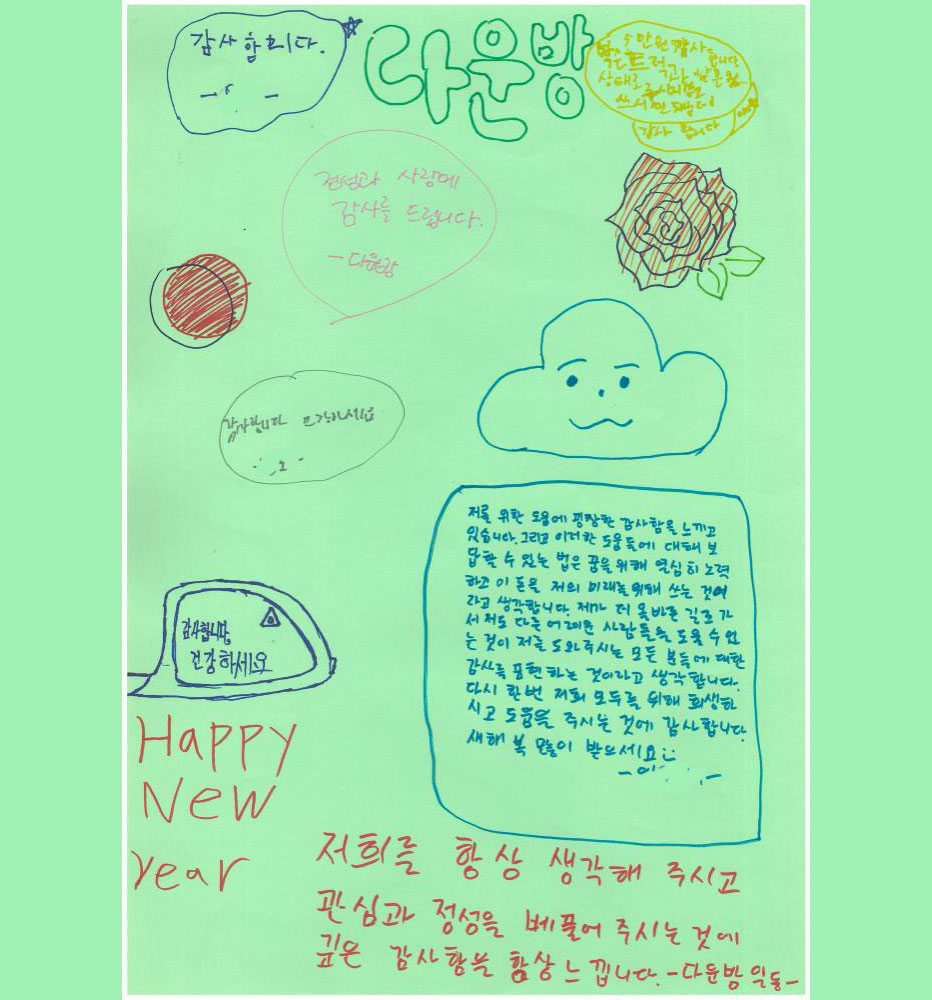 감사합니다.
다운방
5만원 감사
합니다
감사합니다
정성과 사랑에
감사를 드립니다.
-다운방
감사합니다 건강하세요
저를 위한 도움에 굉장한 감사함을 느끼고
있습니다. 그리고 이러한 도움들에 대해 보
답할 수 있는 법은 꿈을 위해 열심히 노력
하고 이 돈을 저의 미래를 위해 쓰는 것이
라고 생각합니다. 제가 더 올바른 길로 가
서 저도 다른 어려운 사람들을 도울 수 있
는 것이 저를 도와주시는 모든 분들에 대한
감사를 표현하는 것이라고 생각합니다.
다시 한번 저희 모두를 위해 희생하
시고 도움을 주시는 것에 감사합니다.
새해 복 많이 받으세요
감사합니다,
건강하세요
Happy
New
year
저희를 항상 생각해 주시고
관심과 정성을 베풀어 주시는 것에
깊은 감사함을 항상 느낍니다. -다운방 일동-